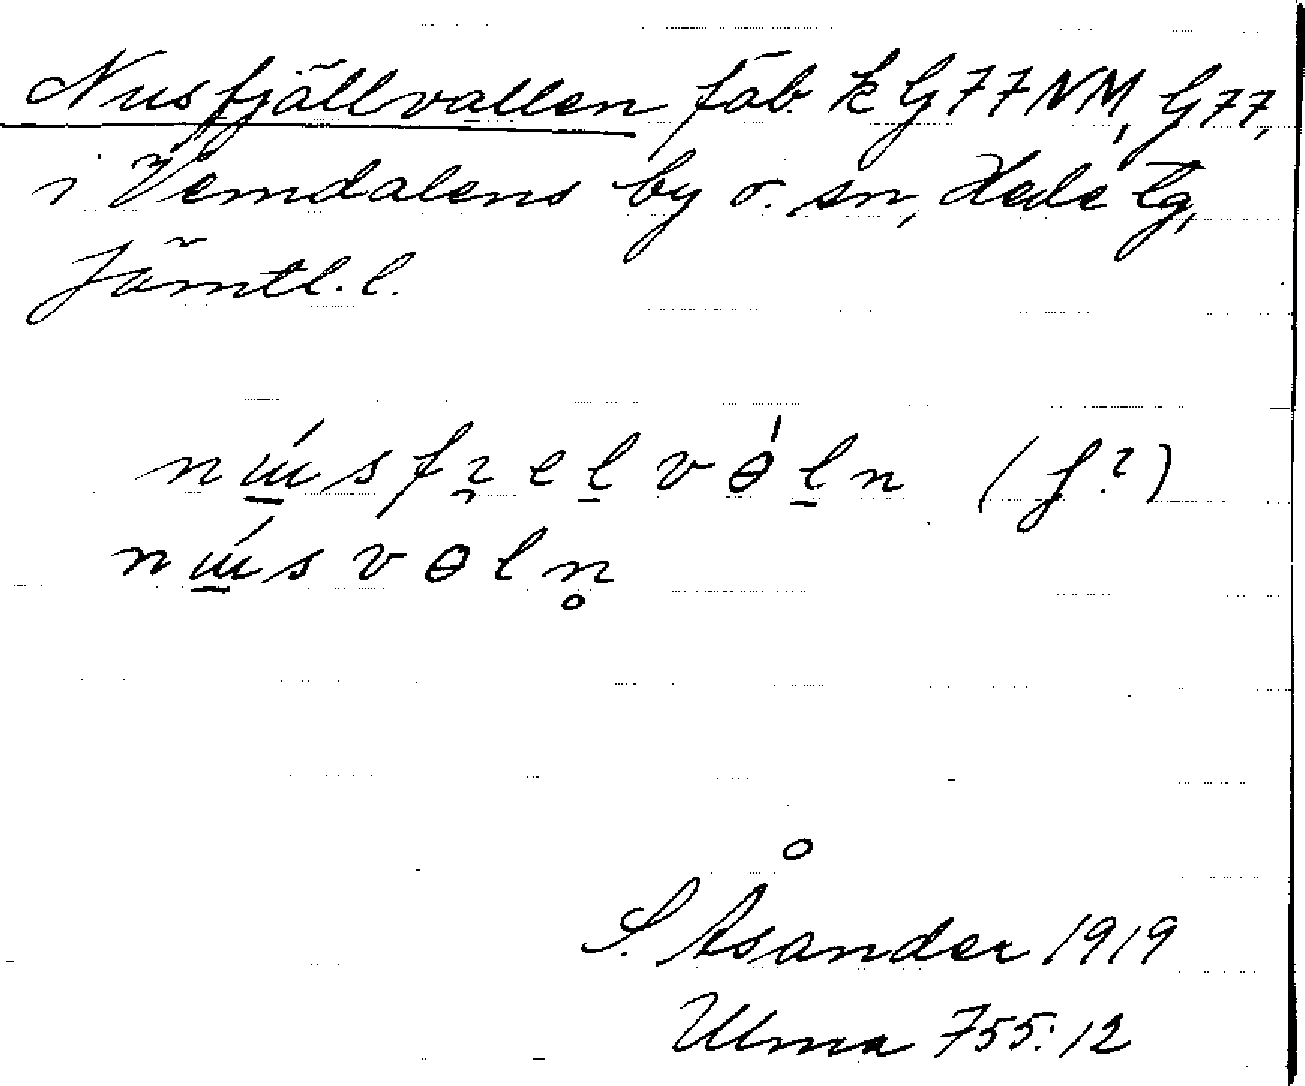 Nusfjällvallen fäb. k G77NM, G77,
i Vemdalens by o. sn, Hede tg,
Jämtl. l.
(f?)
S. Åsander 1919
Ulma 755:12